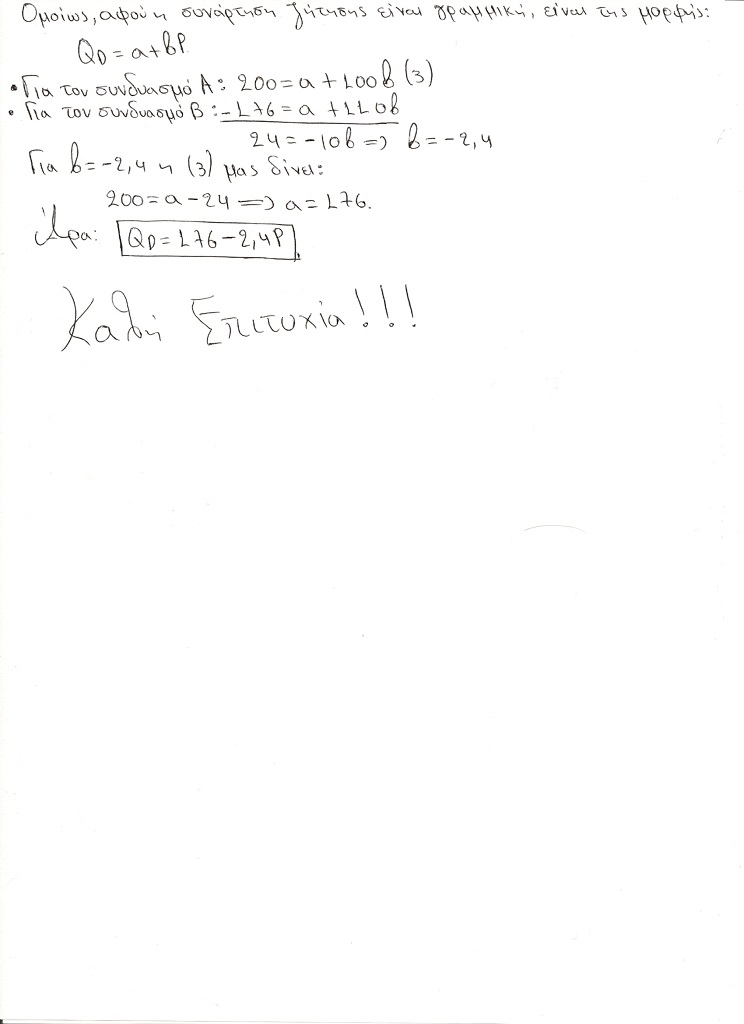 Ομοίως, αφού η συνάρτηση ζήτησης είναι γραμμική, είναι της μορφής:
QD = a + bP
• Για τον συνδυασμό Α: 200 = a + 100b (3)
• Για τον συνδυασμό Β: -176 = a + 110b
24 = -10b => b = -2,4
Για b = -2,4 η (3) μας δίνει:
200 = a - 24 => a = 176.
Άρα: QD = 176 - 2,4P.
Καλή Επιτυχία!!!